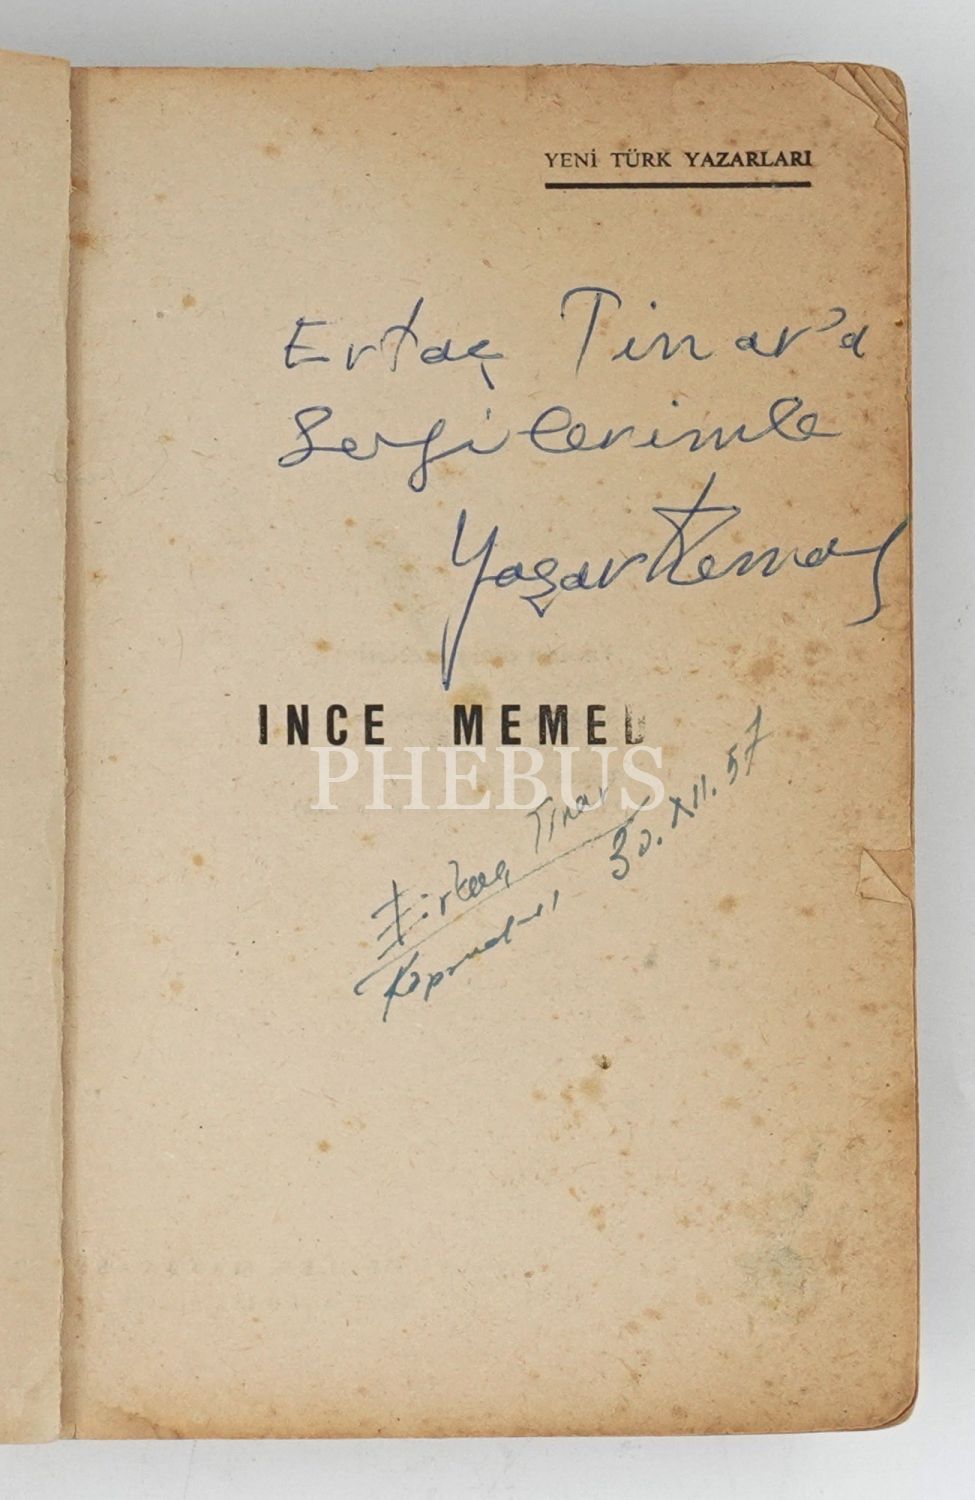 YENİ TÜRK YAZARLARI
Ertaç Tinar'a
Sevgilerimle
Yaşar Kemal
INCE MEMED
PHEBUS
Ertaç Tınar
30.XII.57